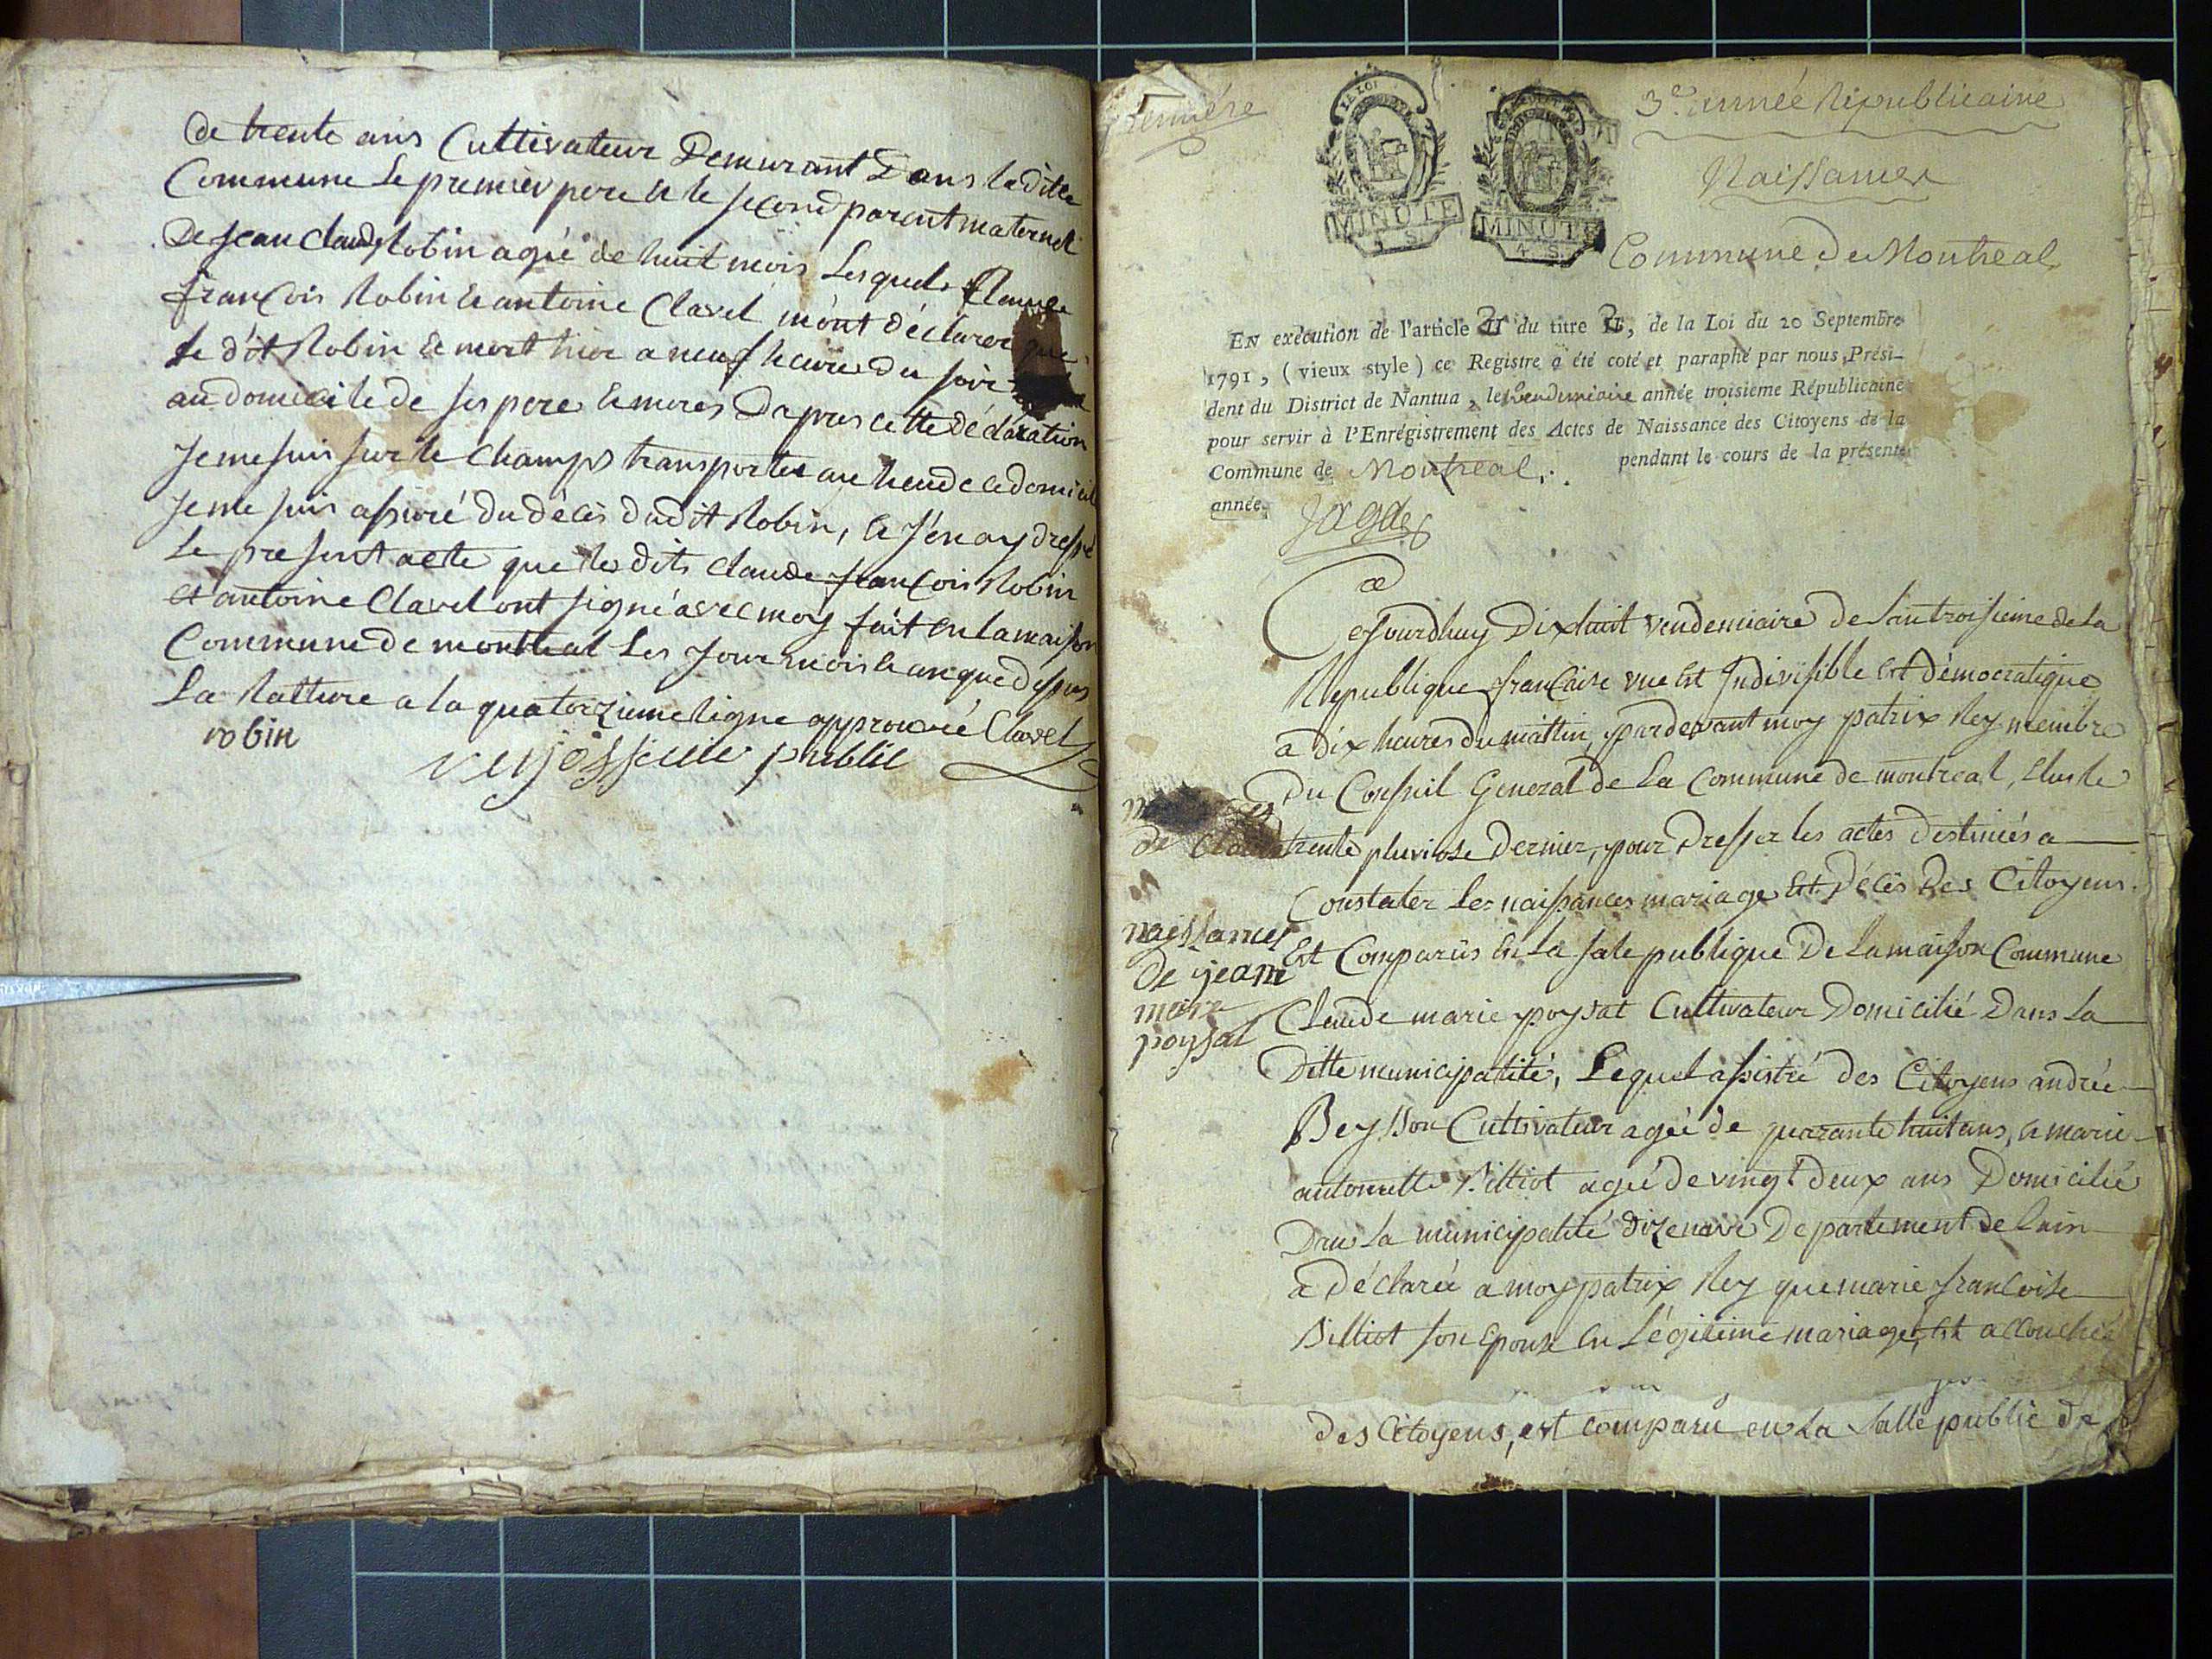 de trente ans Cultivateur Demurant Dans laditte
Commune Le premier pere & le second parent maternel
De jean Claude Robin agié de huit mois Lesquels Claude
françois Robin & antoine Clavel m'ont déclarer que
le dit Robin & mort hier a neuf heures du soir
au domicile de ses pere & meres Dapres cette déclaration
Je me suis sur le Champs transporter au lieu de ce domicil
Je me suis assuré du décès dudit Robin, & J'en ay dressé
Le present acte que les dits Claude françois Robin
et antoine Clavel ont signé avec moy fait en la maison
Commune de montreal Les Jour mois & an que dessus
La Rature a la quatorzieme ligne approuvé Clavel
robin
rey officie public
premiére
LA LOI
MINUTE
4. S.
MINUTE
4. S.
3e. année Républicaine
Naissances
Commune de Montreal
EN exécution de l'article II du titre II, de la Loi du 20 Septembre
1791, (vieux style) ce Registre a été coté et paraphé par nous Prési-
dent du District de Nantua, le vendemiaire année troisieme Républicaine
pour servir à l'Enrégistrement des Actes de Naissance des Citoyens de la
Commune de Montreal, pendant le cours de la présente
année.
Cejourdhuy Dixhuit vendemiaire de l'an troisieme de La
Republique francaise une Est Indivisible Est démocratique
a Dix heures du mattin, pardevant moy patrix Rey membre
Du Conseil General de La Commune de montreal, Elus le
trente pluviose Dernier, pour Dresser les actes Destinés a
Constater Les naissances mariage Est Décès Des Citoyens.
Est Comparüs En La sale publique De Lamaison Commune
naissances
de jean
marie
poysat
Claude marie poysat Cultivateur Domicilié Dans La
Ditte municipalité, Lequel assistré des Citoyens andrée
Beysson Cultivateur agée de quarante huit ans, & marie
antoinette Silliot agée de vingt deux ans Domicilié
Dans La municipalité dizenave Departement de l'ain
a Déclarée a moy patrix Rey que marie françoise
Silliot son Epouse En Légitime mariage, Est accouchée
des Citoyens, est comparû en La Salle public de